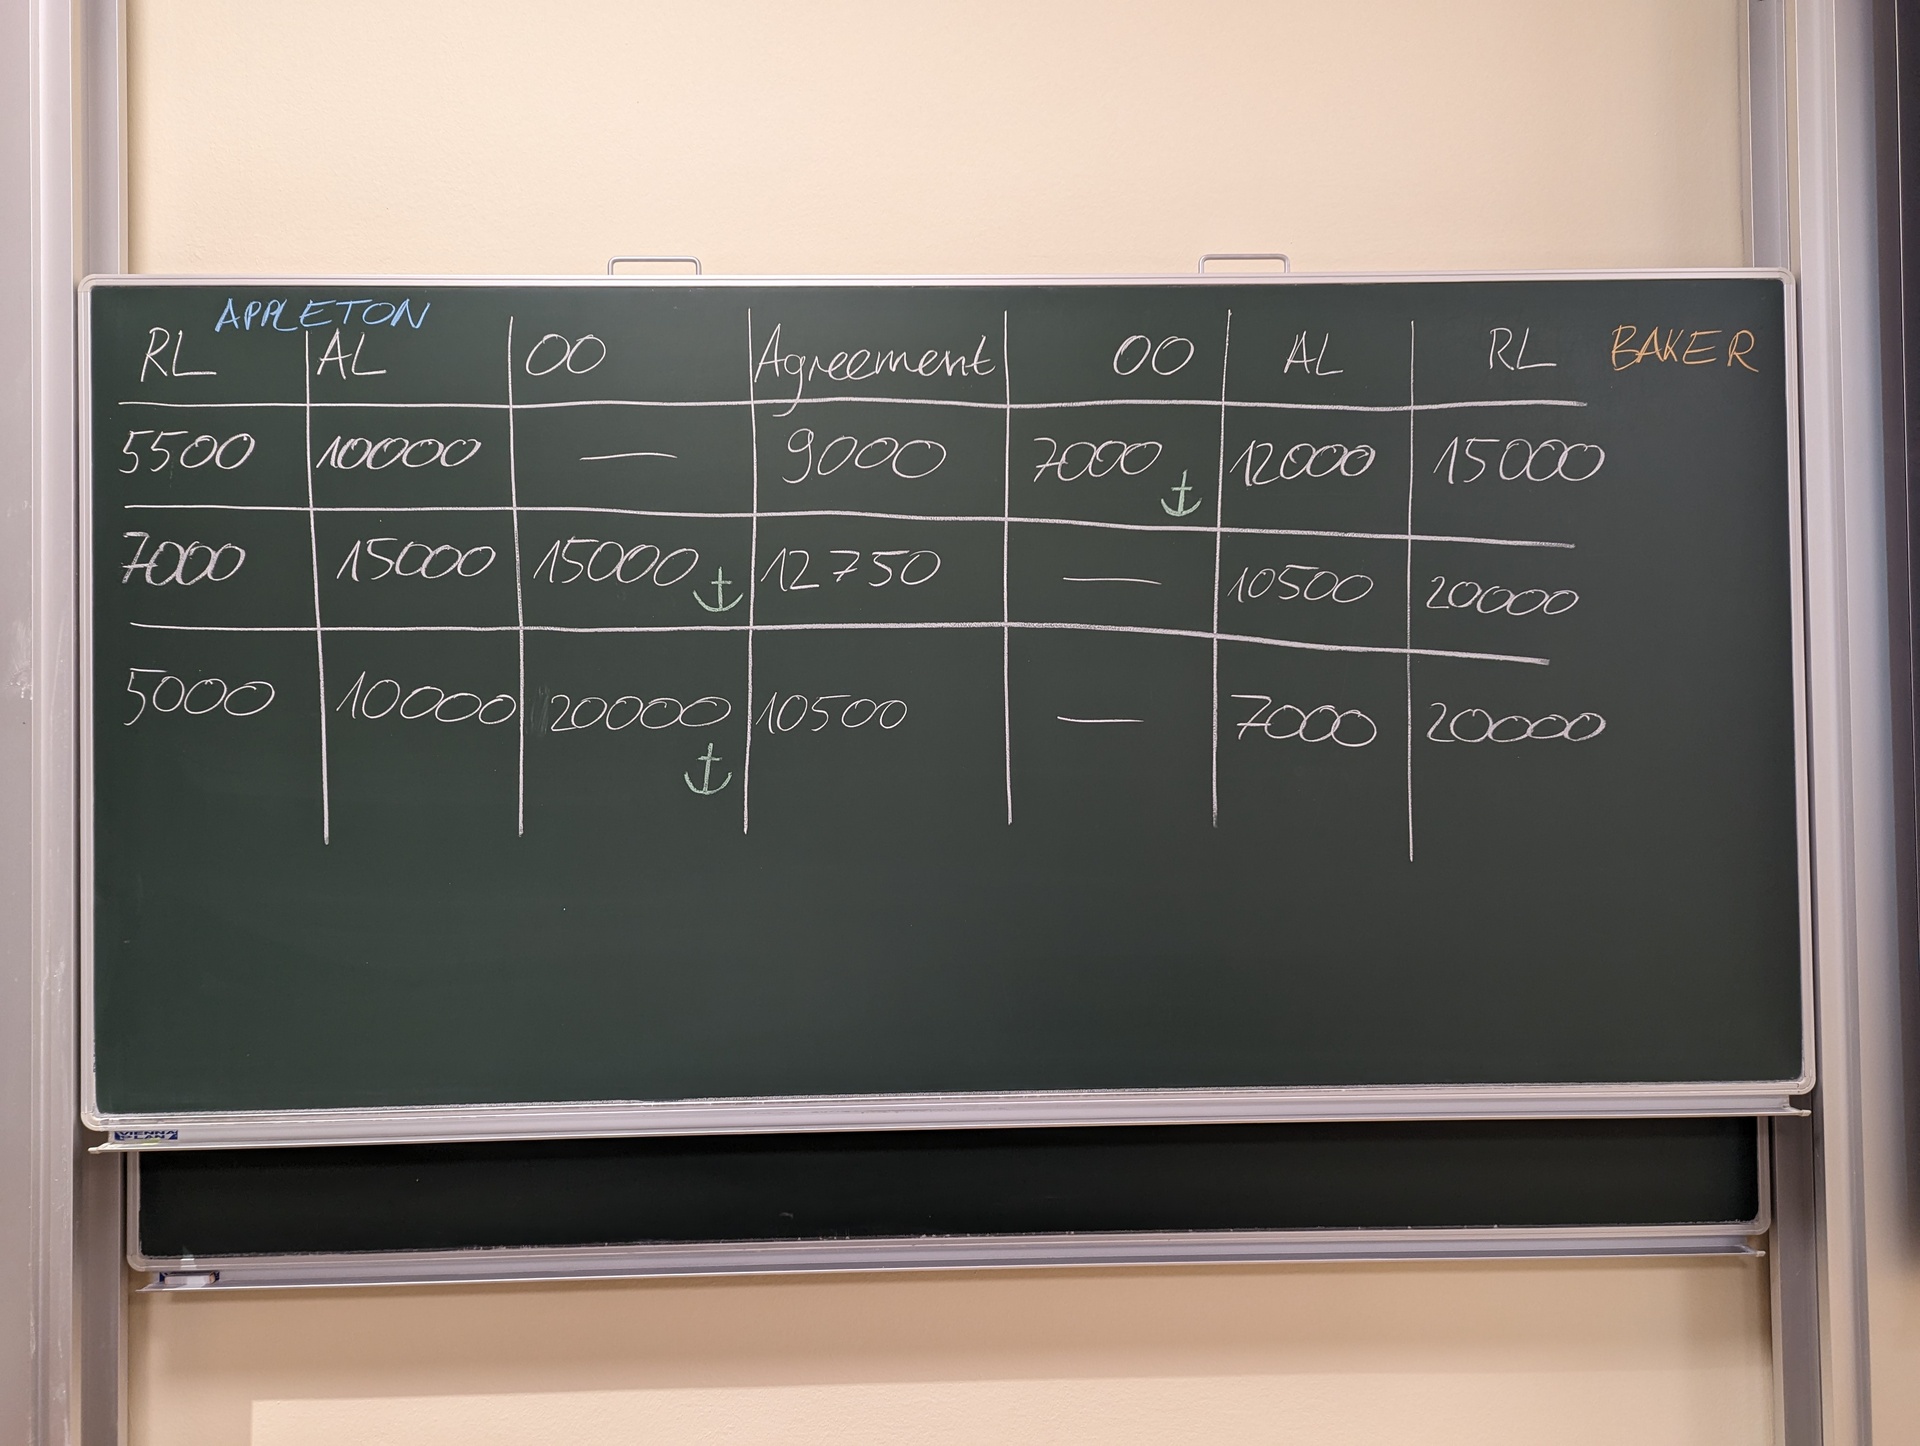 APPLETON
RL AL OO Agreement OO AL RL BAKER
5500 10000 — 9000 7000 12000 15000
7000 15000 15000 12750 — 10500 20000
5000 10000 20000 10500 — 7000 20000
VIENNA